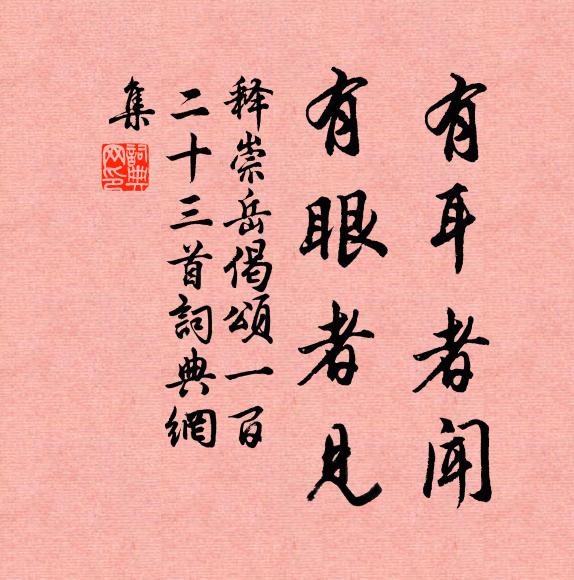 有耳者闻
有眼者见
释崇岳偈頌一百
二十三首詞典網
集
詞典網印